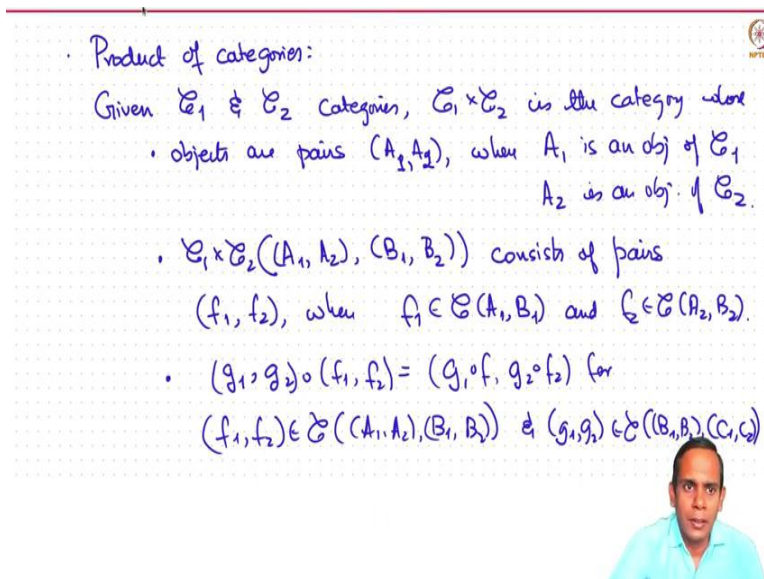 · Product of categories:
NPTEL
Given 𝒞₁ & 𝒞₂ categories, 𝒞₁×𝒞₂ is the category where
· objects are pairs (A₁,A₂), when A₁ is an obj of 𝒞₁
A₂ is an obj. of 𝒞₂.
· 𝒞₁×𝒞₂((A₁, A₂), (B₁, B₂)) consists of pairs
(f₁, f₂), when f₁ ∈ 𝒞(A₁, B₁) and f₂ ∈ 𝒞(A₂, B₂).
· (g₁, g₂)∘(f₁, f₂) = (g₁∘f, g₂∘f₂) for
(f₁, f₂) ∈ 𝒞((A₁, A₂), (B₁, B₂)) & (g₁, g₂) ∈ 𝒞((B₁, B₂), (C₁, C₂)